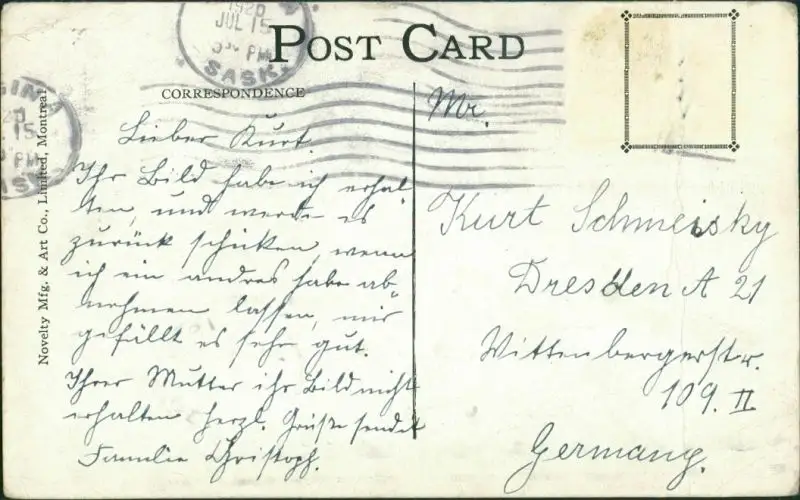 1920
JUL 15
PM
SASK.
POST CARD
CORRESPONDENCE
Novelty Mfg. & Art Co., Limited, Montreal
Lieber Kurt.
Ihr Bild habe ich erhal
ten, und werde es
zurück schicken, wenn
ich ein andres habe ab
nehmen lassen, mir
gefällt es sehr gut.
Ihrer Mutter ihr Bild nicht
erhalten herzl. Grüße sendet
Familie Christoph.
Mr.
Kurt Schmeisky
Dresden A 21
Wittenbergerstr.
109. II
Germany.